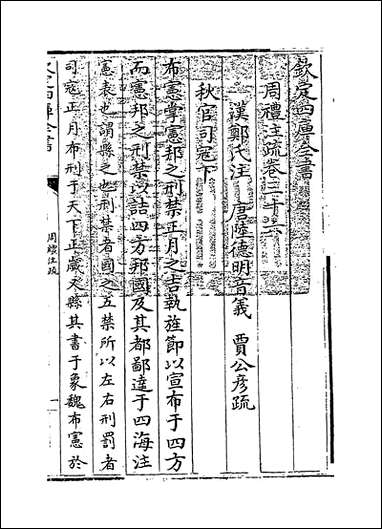 欽定四庫全書
周禮注疏卷三十六
漢鄭氏注 唐陸德明音義 賈公彥疏
秋官司寇下
布憲掌憲邦之刑禁正月之吉執旌節以宣布于四方
而憲邦之刑禁以詰四方邦國及其都鄙達于四海注
憲表也謂縣之也刑禁者國之五禁所以左右刑罰者
司寇正月布刑于天下正歲又縣其書于象魏布憲於
欽定四庫全書
周禮注疏
一